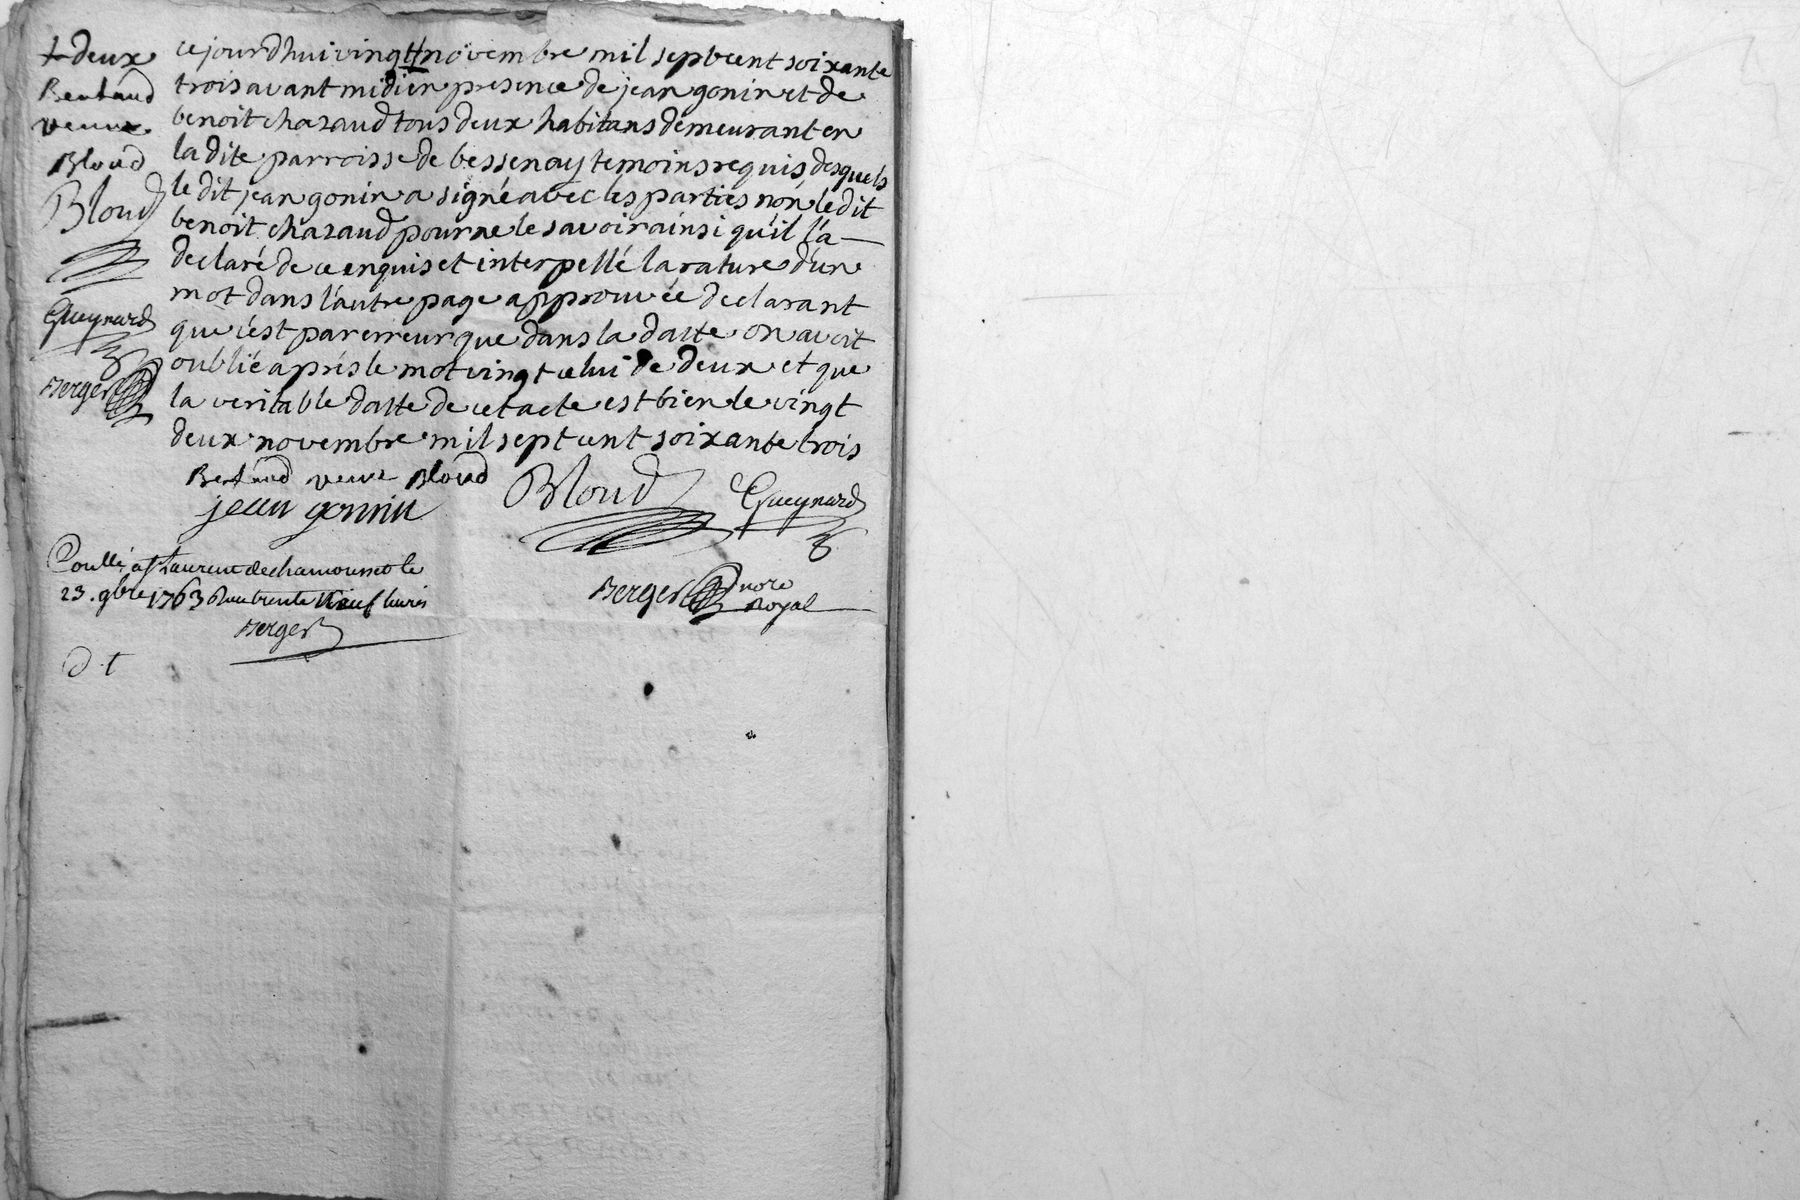 + deux
Bertaud
veuve
Bloud
Bloud
Gueynard
Berger
ce jourdhui vingt # novembre mil sept cent soixante
trois avant midi en presence de jean gonin et de
benoit chazaud tous deux habitans demeurant en
la dite parroisse de bessenay temoins requis desquels
le dit jean gonin a signé avec les parties non le dit
benoit chazaud pour ne le savoir ainsi qu'il l'a
declaré de ce enquis et interpellé la rature d'un
mot dans l'autre page approuvée declarant
que c'est par erreur que dans la datte on avoit
oublié aprés le mot vingt celui de deux et que
la veritable datte de cet acte est bien le vingt
deux novembre mil sept cent soixante trois
Bertaud veuve Bloud Bloud Gueynard
jean gonnin
Berger nore
Royal
Coullé a St Laurent de chamousset le
23. 9bre 1763 Reçu trente neuf livres
Berger
d t